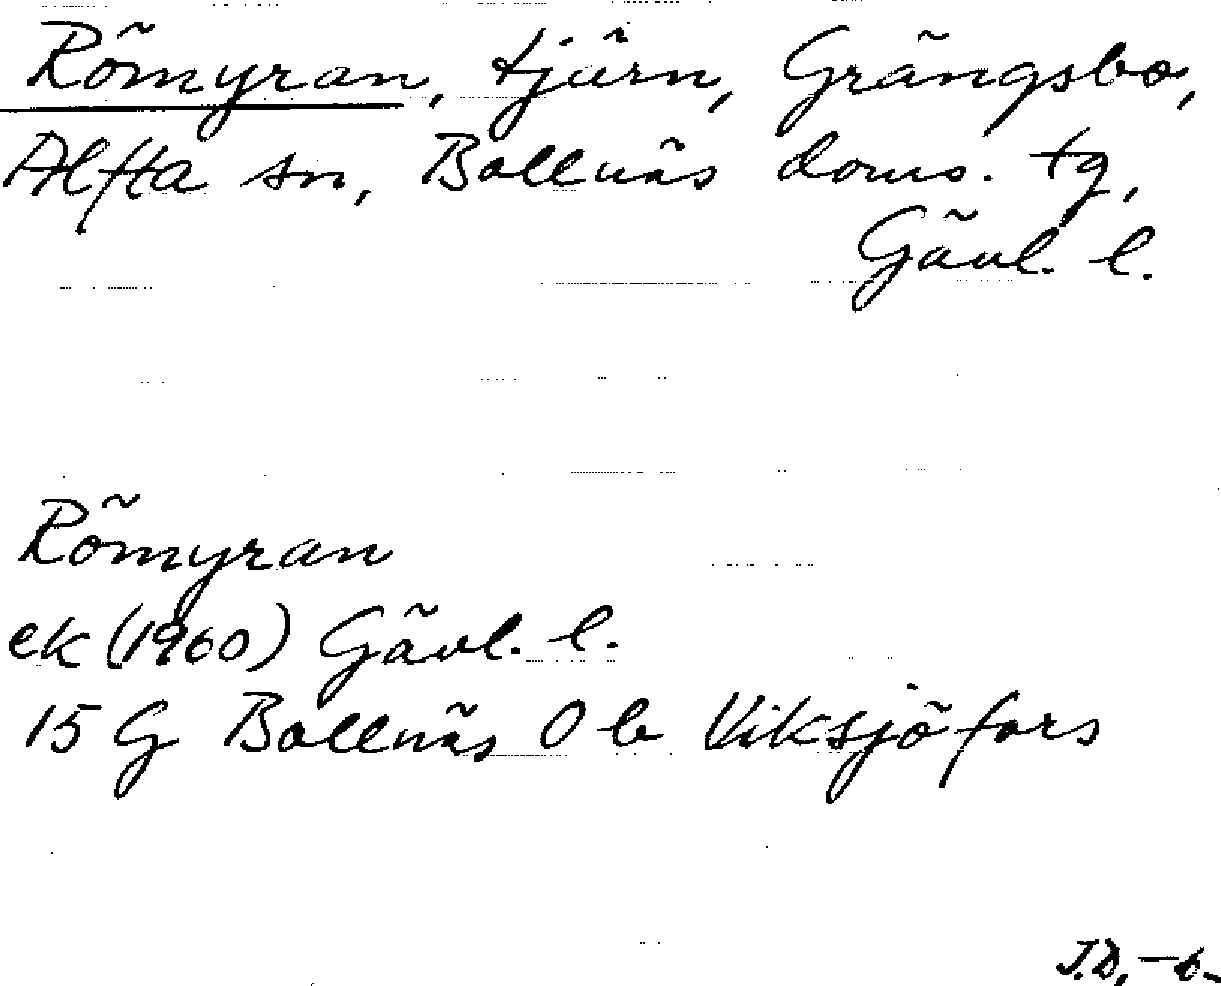 Römyran, tjärn, Grängsbo,
Alfta sn, Bollnäs doms. tg,
Gävl. l.
Römyran
ek (1960) Gävl. l.
15 G Bollnäs 0 b Viksjöfors
J.D.